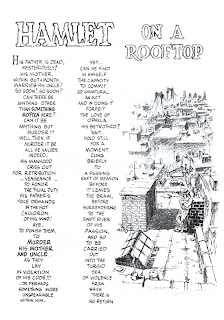 HAMLET
ON A
ROOFTOP
HIS FATHER IS DEAD,
MYSTERIOUSLY!
HIS MOTHER,
WITHIN BUT A MONTH,
MARRIES HIS UNCLE!
SO SOON! SO SOON?
CAN THERE BE
ANYTHING OTHER
THAN SOMETHING
ROTTEN HERE?
CAN IT BE
ANYTHING
BUT
MURDER..!?
WELL, THEN, IF
MURDER IT BE
ALL HE VALUES,
INDEED,
HIS MANHOOD
CRIES OUT
FOR RETRIBUTION
...VENGEANCE...
TO HONOR
THE
HIS FATHER'S
DEMANDS
IN THE HOT
CAULDRON
OF HIS MIND
AYE,
TO PUNISH THEM,
TO
MURDER
HIS MOTHER
AND UNCLE...
AS THEY
LAY
IN VIOLATION
OF HIS CODE!!!
...OR PERHAPS
SOMETHING MORE
UNSPEAKABLE
WITHIN HIM...
YET,
CAN HE FIND
IN HIMSELF
THE CAPACITY
TO COMMIT
SO UNNATURAL
AN ACT
AND IN DOING IT
FORFEIT
THE LOVE OF
OPHELIA,
HIS BETROTHED?
WAIT...
HOLD STILL
FOR A
MOMENT,
CLING
BRIEFLY
TO
A PASSING
RAFT OF REASON
BEFORE
IT LEAVES
THE BRAIN,
BEFORE
SURRENDERING
TO THE
SWIFT RIVER
OF HIS
PASSION,
AND SO
TO BE
CARRIED
OUT
INTO THE
TURGID
SEA
OF VIOLENCE
FROM
WHICH
THERE IS
NO RETURN